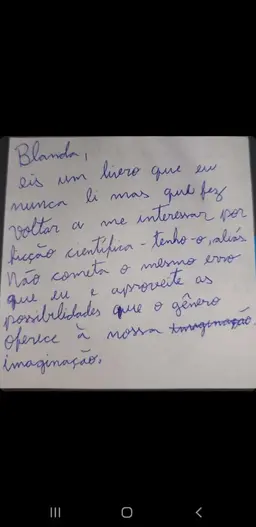 Blanda,
eis um livro que eu
nunca li mas que fez
voltar a me interessar por
ficção científica - tenho-o, aliás
Não cometa o mesmo erro
que eu e aproveite as
possibilidades que o gênero
oferece à nossa imaginação.
imaginação.